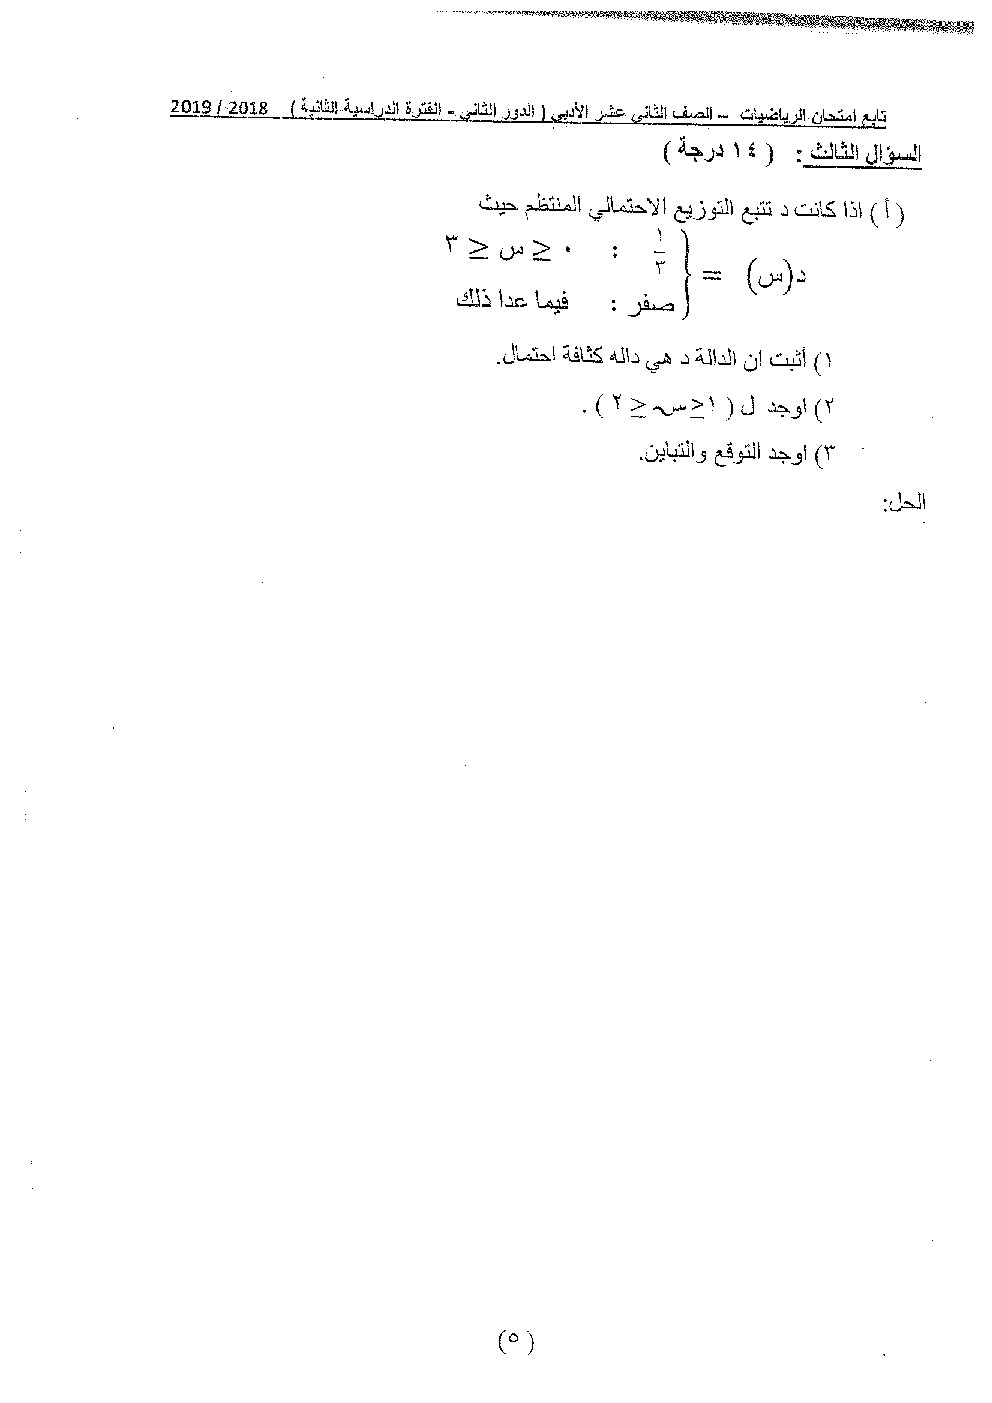 تابع امتحان الرياضيات – الصف الثاني عشر الأدبي ( الدور الثاني - الفترة الدراسية الثانية ) 2018 / 2019
السؤال الثالث : ( ١٤ درجة )
( أ ) اذا كانت د تتبع التوزيع الاحتمالي المنتظم حيث
د(س) = { ١/٣ : ٠ ≤ س ≤ ٣
صفر : فيما عدا ذلك
١) أثبت ان الدالة د هي داله كثافة احتمال.
٢) اوجد ل ( ١ ≤ س ≤ ٢ ) .
٣) اوجد التوقع والتباين.
الحل:
( ٥ )